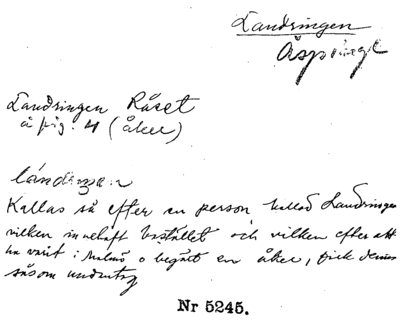 Landringen
Äspinge
Landringen Råset
å fig. 4 (åker)
låndringen
Kallas så efter en person, kallad Landringen
vilken innehaft bostället och vilken efter att
ha varit i Malmö o begärt en åker, fick denna
såsom undantag
Nr 5245.